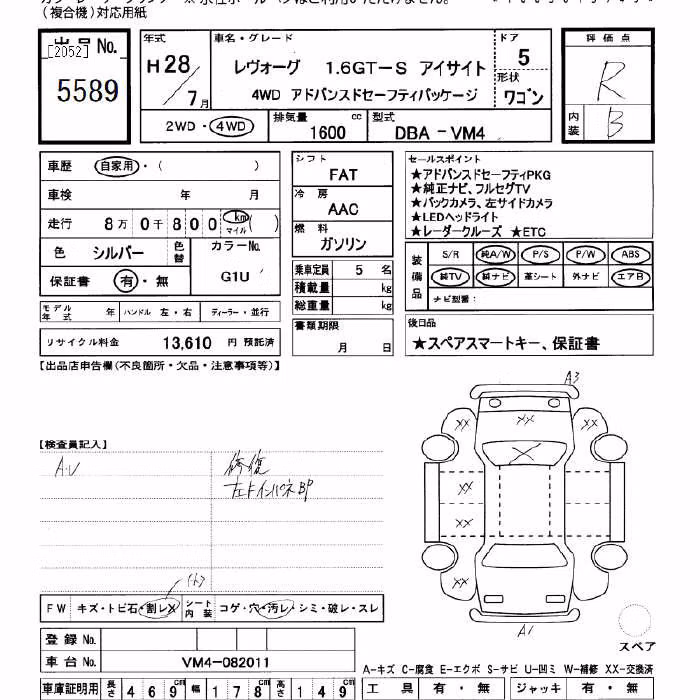 (複合機)対応用紙
出品No.
[2052]
5589
年式
H28/7月
車名・グレード
レヴォーグ 1.6GT-S アイサイト
4WD アドバンスドセーフティパッケージ
ドア
5
形状
ワゴン
評価点
R
内装
B
2WD・4WD
排気量 1600 cc
型式 DBA-VM4
車歴 自家用・( )
車検 年 月
走行 8万0千800 km マイル ( )
色 シルバー 色替 カラーNo. G1U
保証書 有・無
モデル年式 年 ハンドル 左・右 ディーラー・並行
リサイクル料金 13,610 円 預託済
シフト
FAT
冷房
AAC
燃料
ガソリン
乗車定員 5 名
積載量 kg
総重量 kg
書類期限
月 日
セールスポイント
★アドバンスドセーフティPKG
★純正ナビ、フルセグTV
★バックカメラ、左サイドカメラ
★LEDヘッドライト
★レーダークルーズ ★ETC
装備品
S/R 純A/W P/S P/W ABS
純TV 純ナビ 革シート 外ナビ エアB
ナビ型番:
後日品
★スペアスマートキー、保証書
【出品店申告欄(不良箇所・欠品・注意事項等)】
【検査員記入】
A・U
修復
左ドインパネBP
FW キズ・トビ石・割レX シート内装 コゲ・穴・汚レ・シミ・破レ・スレ
登録No.
車台No. VM4-082011
車庫証明用 長さ 469cm 幅 178cm 高さ 149cm
A3
XX
XX XX
X
XX
XX
XX XX
A1
スペア
A-キズ C-腐食 E-エクボ S-サビ U-凹ミ W-補修 XX-交換済
工具 有・無 ジャッキ 有・無